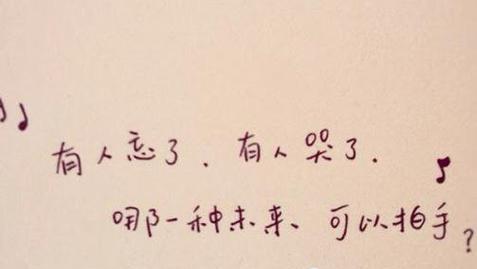 有人忘了．有人哭了．
哪一种未来、可以拍手？